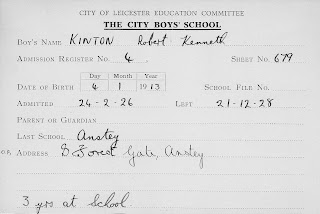 CITY OF LEICESTER EDUCATION COMMITTEE
THE CITY BOYS' SCHOOL
BOY'S NAME KINTON Robert Kenneth
ADMISSION REGISTER NO. 4 SHEET NO. 679
Day Month Year
DATE OF BIRTH 4 1 1913 SCHOOL FILE NO.
ADMITTED 24-2-26 LEFT 21-12-28
PARENT OR GUARDIAN
LAST SCHOOL Anstey
O.F. ADDRESS 8 Forest Gate, Anstey
3 yrs at School